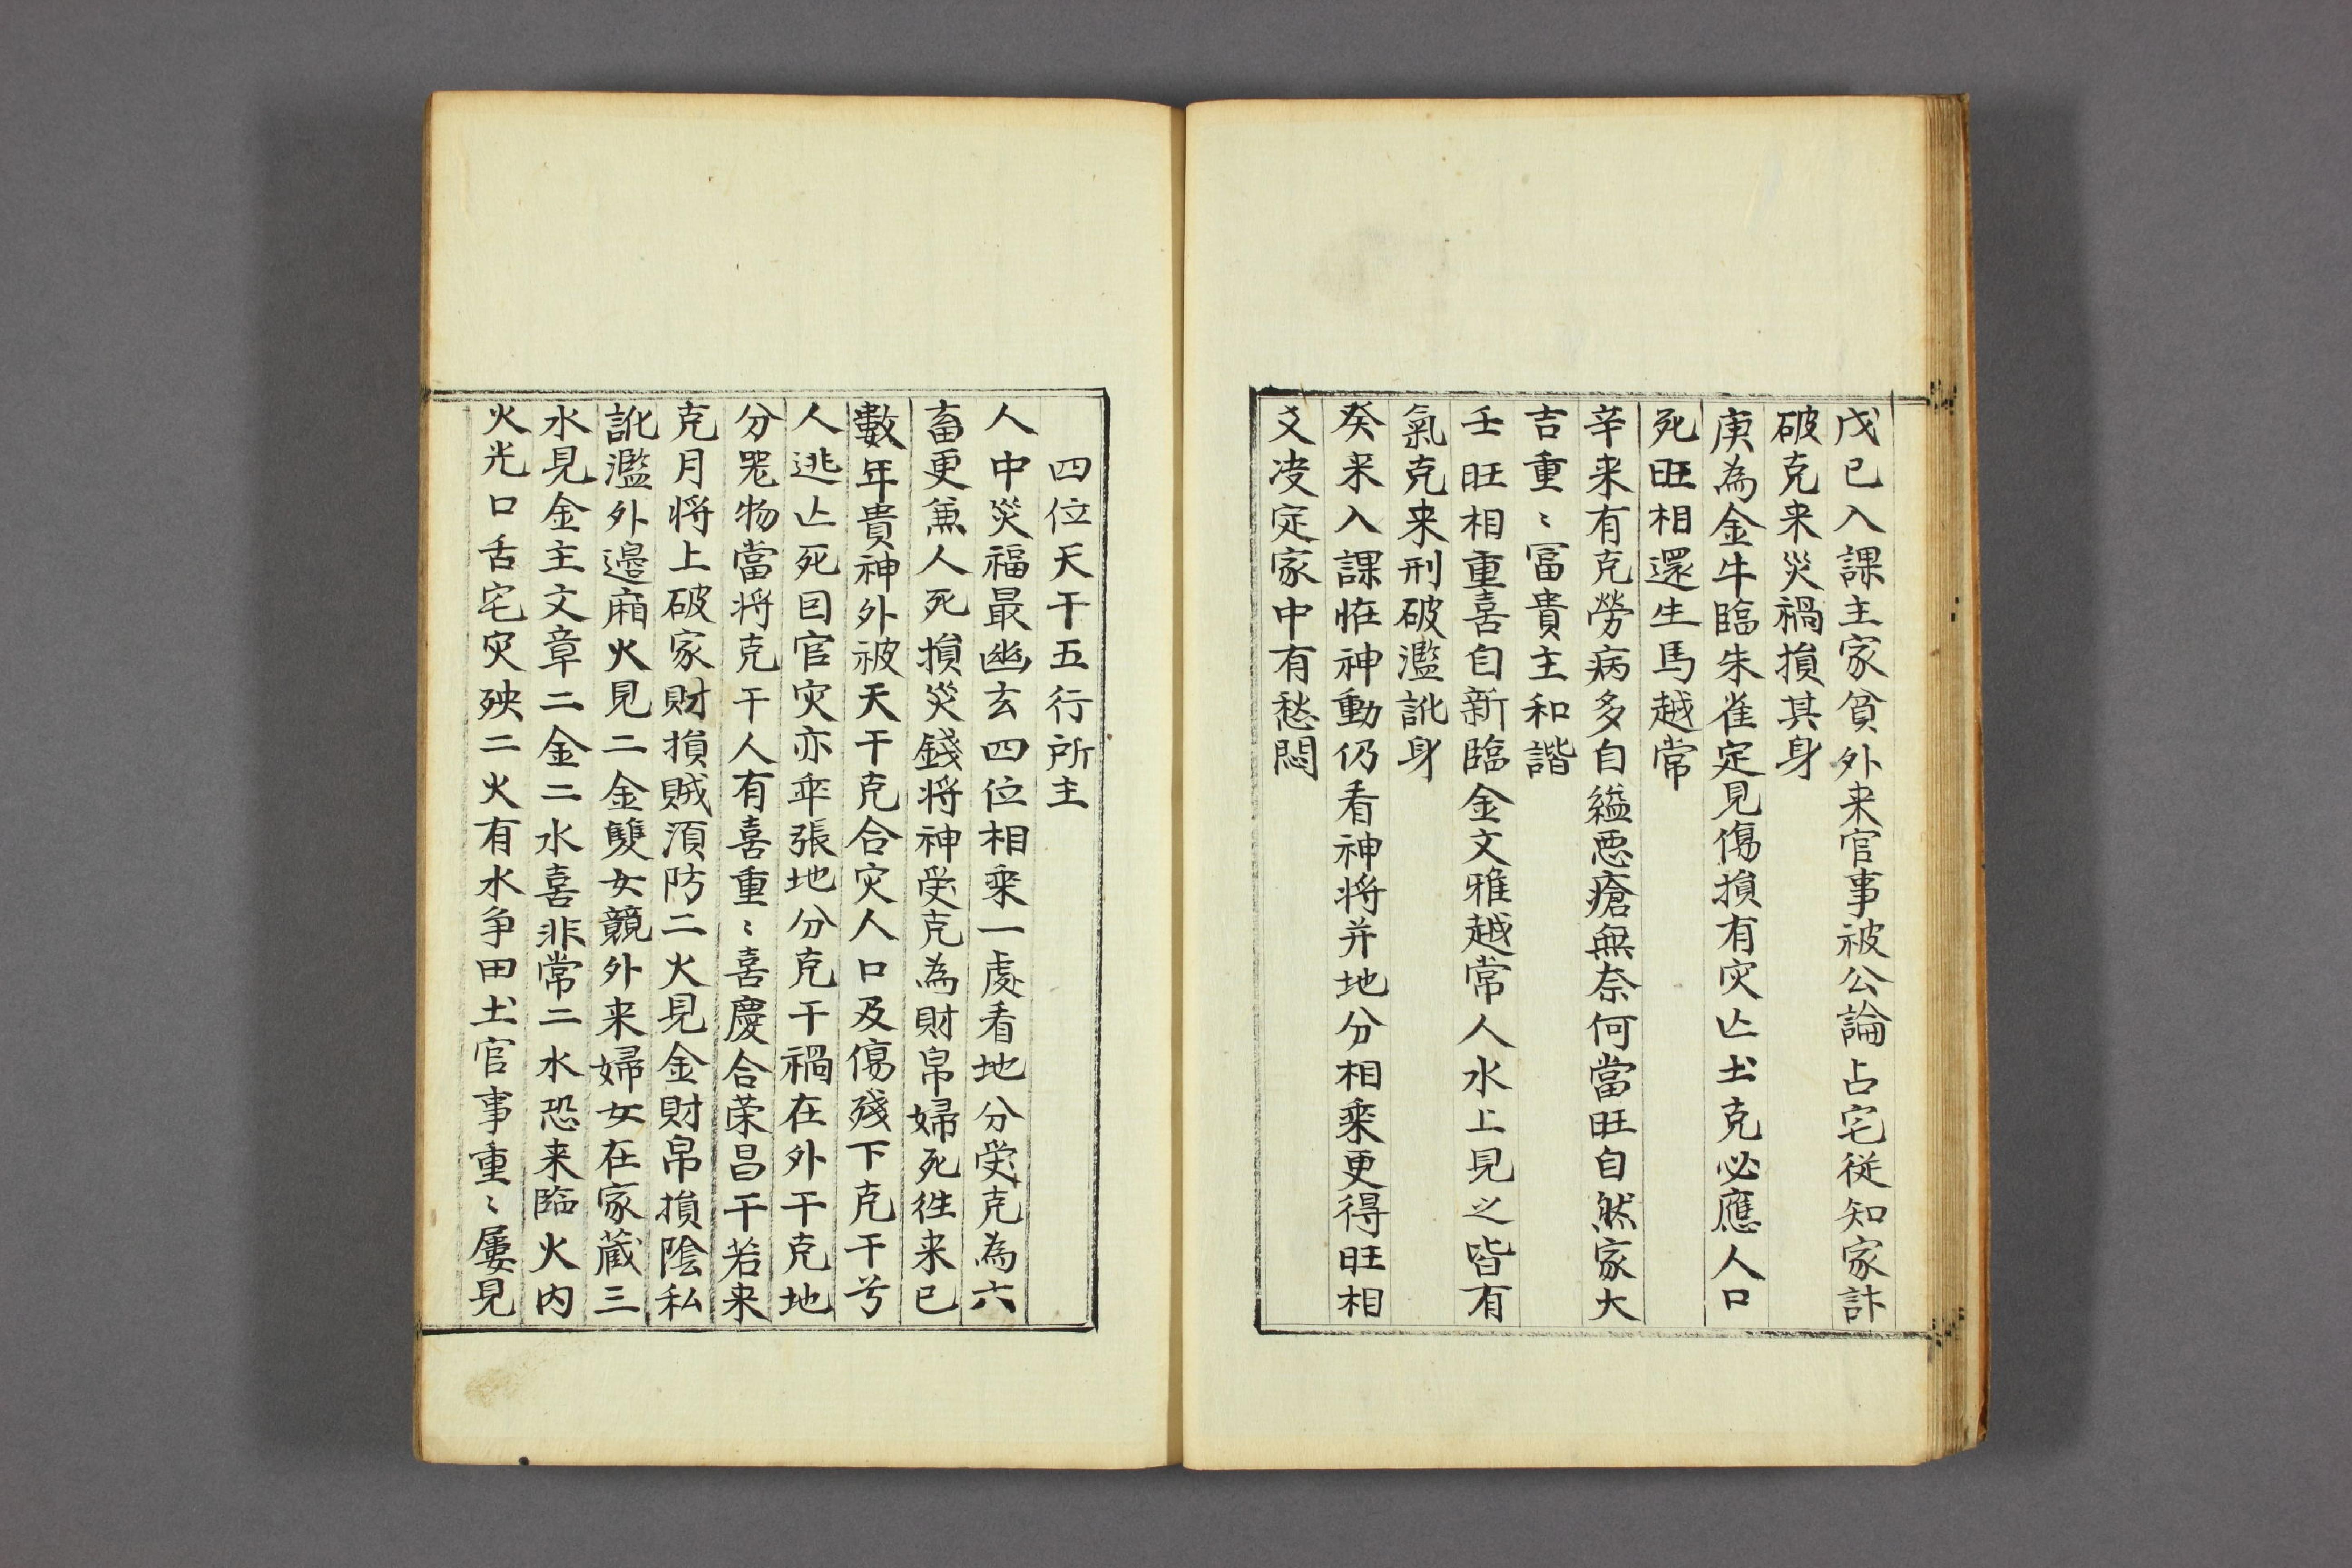 戊已入課主家貧外来官事被公論占宅従知家訃
破克来災禍損其身
庚為金牛臨朱雀定見傷損有灾亾土克必應人口
死旺相還生馬越常
辛来有克勞病多自縊悪瘡無奈何當旺自然家大
吉重〻冨貴主和諧
壬旺相重喜自新臨金文雅越常人水上見之皆有
氣克来刑破濫訛身
癸来入課恠神動仍看神将并地分相乗更得旺相
爻凌定家中有愁悶
四位天干五行所主
人中災福最幽玄四位相乗一處看地分受克為六
畜更兼人死損災錢将神受克為財帛婦死徃来已
數年貴神外被天干克合灾人口及傷殘下克干兮
人逃亾死囙官灾亦乖張地分克干禍在外干克地
分咒物當将克干人有喜重〻喜慶合荣昌干若来
克月将上破家財損賊湏防二火見金財帛損陰私
訛濫外邊廂火見二金雙女競外来婦女在家蔵三
水見金主文章二金二水喜非常二水恐来臨火内
火光口舌宅灾殃二火有水争田土官事重〻屢見